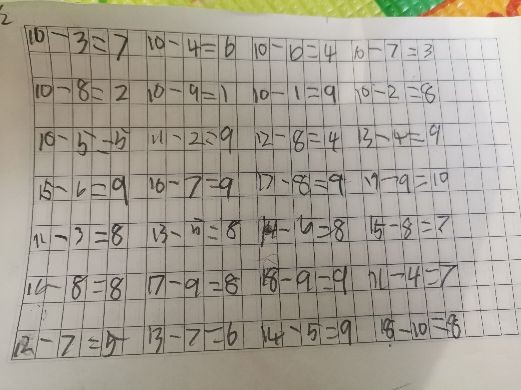 1/2
10-3=7 10-4=6 10-6=4 10-7=3
10-8=2 10-9=1 10-1=9 10-2=8
10-5=5 11-2=9 12-8=4 13-4=9
15-6=9 16-7=9 17-8=9 19-9=10
11-3=8 13-5=8 14-6=8 15-8=7
16-8=8 17-9=8 18-9=9 11-4=7
12-7=5 13-7=6 14-5=9 18-10=8